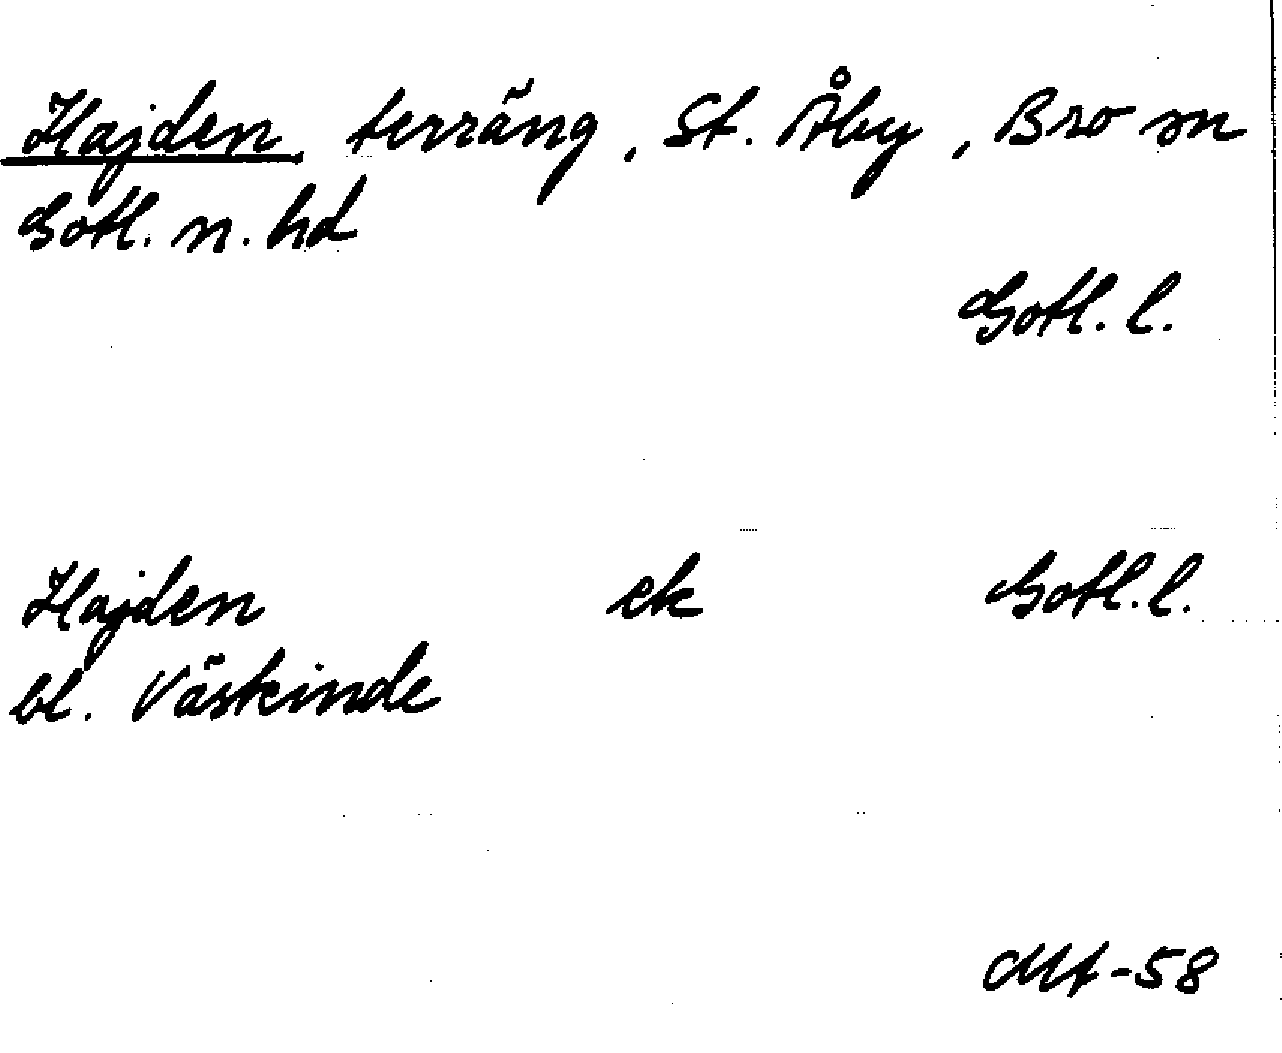 Hajden, terräng, St. Åby, Bro sn
Gotl. n. hd
Gotl. l.
Hajden ek Gotl. l.
bl. Väskinde
Mt-58